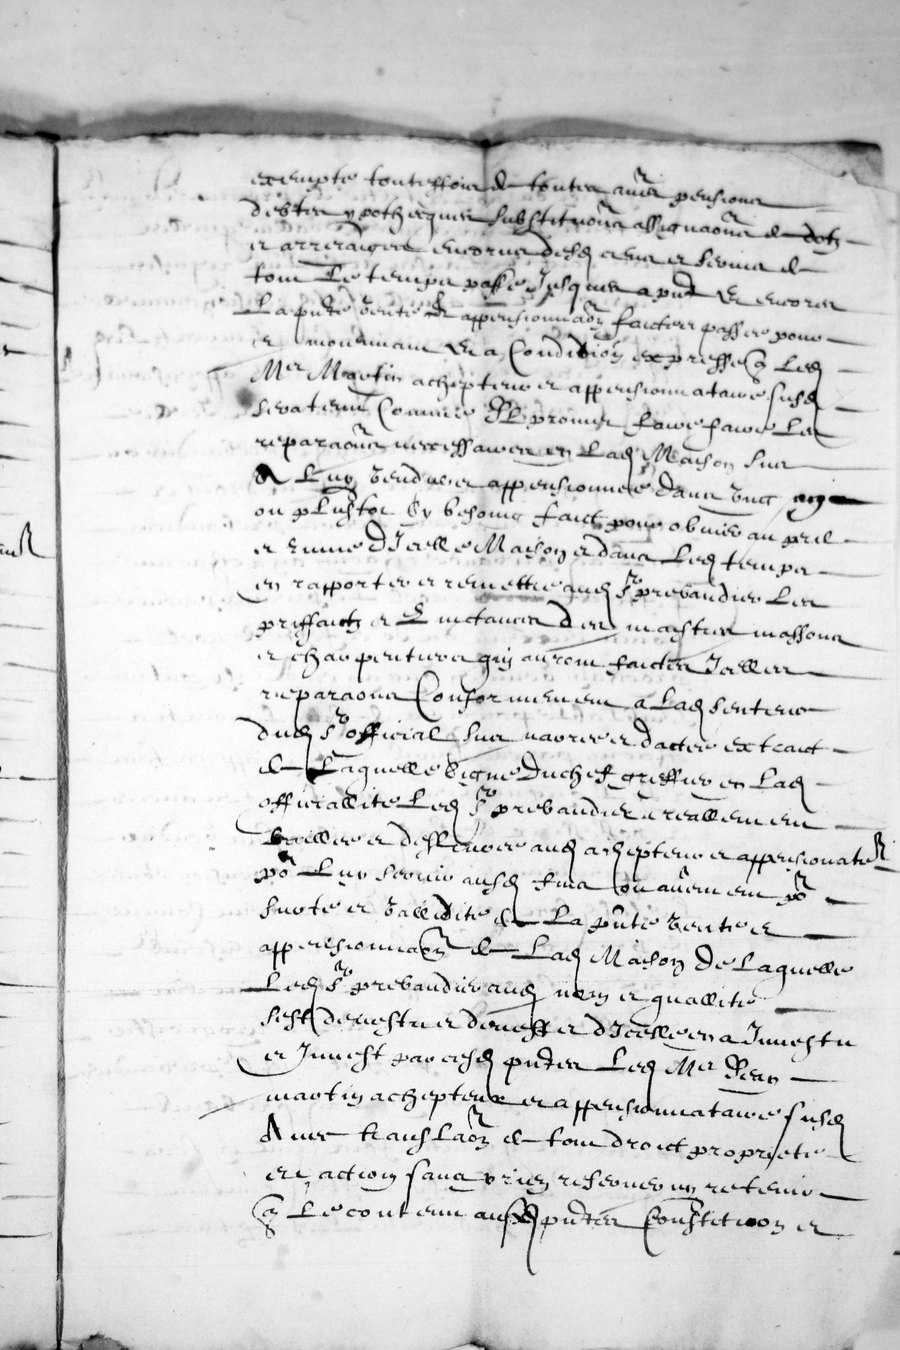 exempte touteffois de toutes aues pensions
debtes ypothecques substituons assignaons et dotz
et arreraiges encorus desd cens et servis de
tout Le temps passe Jusques a pnt et encores
La pnte vente et appensionnaon faictes passee pour
et moiennant et a Condition expresse q Led
Mer Martin achepteur et appensionnataire susd
sera tenu Comme Il promet faire faire Les
reparaons necessaires en Lad Maison sus
A Luy vendue et appensionnee dans ung an
ou plustot sy besoing faict pour obvier au peril
et ruine d'Icelle Maison et dans Led temps
en rapporter et remettre aud Sr prebandier Les
priffaictz et quictances des maistres massons
et charpentiers quy auront faictes Icelles
reparaons Conformement a Lad sentence
dud Sr official sus narree et dactee extraict
de Laquelle signe Duchef greffier en Lad
officiallite Led Sr prebandier a reallement
baille et deslivre aud achepteur et appensionatre
por Luy servir ausd fins ou autrement por
surte et vallidite de La pnte vente et
appensionnaon de Lad Maison de Laquelle
Led Sr prebandier aud nom et quallite
sest devestu et devest et d'Icelle en a Investu
et Invest par cesd pntes Led Mer Jean
martin achepteur et appensionnataire susd
Avec translaon de tout droict propriete
et action sans y rien reserver ny retenir
q Le contenu ausd pntes Constitution et